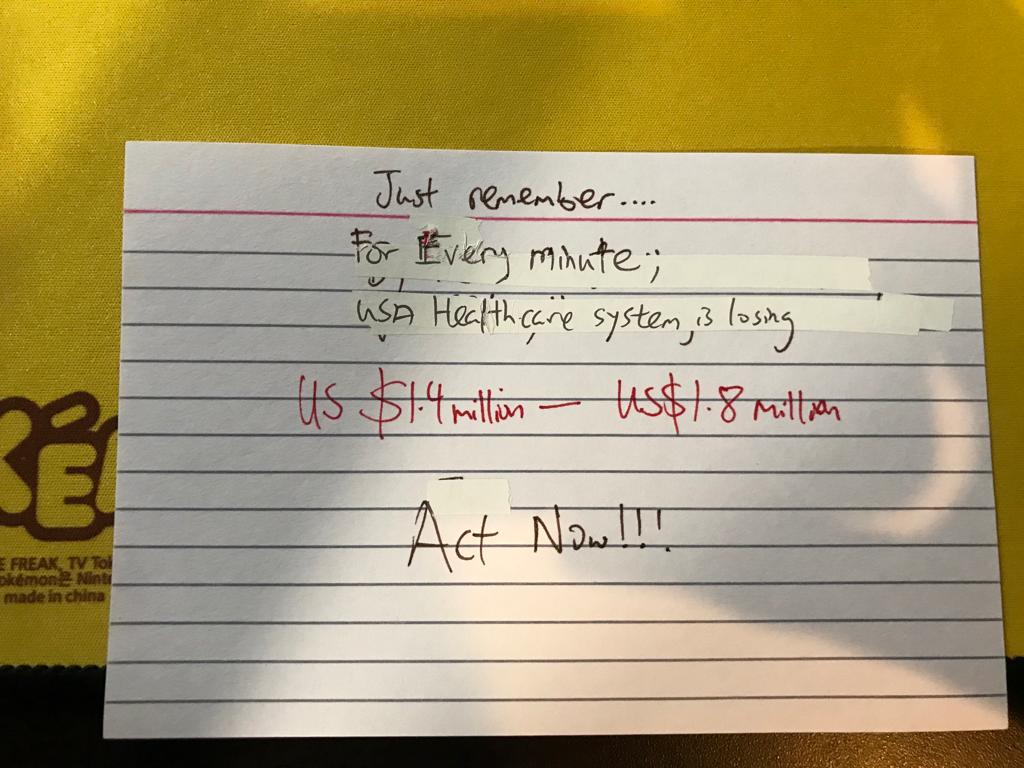 Just remember....
For Every minute;
USA Healthcare system, is losing
US $1.4 million — US$1.8 million
Act Now!!!
E FREAK, TV To
okémon은 Ninte
made in china